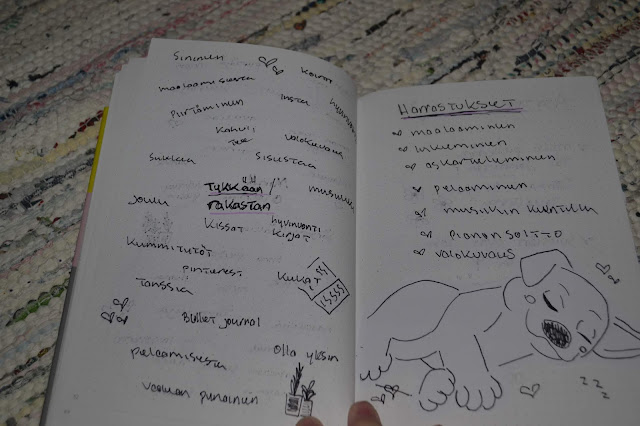 Sininen Koirat
maalaamisesta insta
Piirtäminen
Kahvi valokuvaus
Tee
Suklaa Sisustaa
Tykkään /
rakastan
Joulu
Kissat hyvinvointi
kirjat
Kummitytöt
pinterest Kukat
Tanssia
Bullet journal
pelaamisesta Olla yksin
vaalean punainen
Harrastukset
maalaaminen
lukeminen
askarteleminen
pelaaminen
musiikin kuuntelu
pianon soitto
valokuvaus
z z z